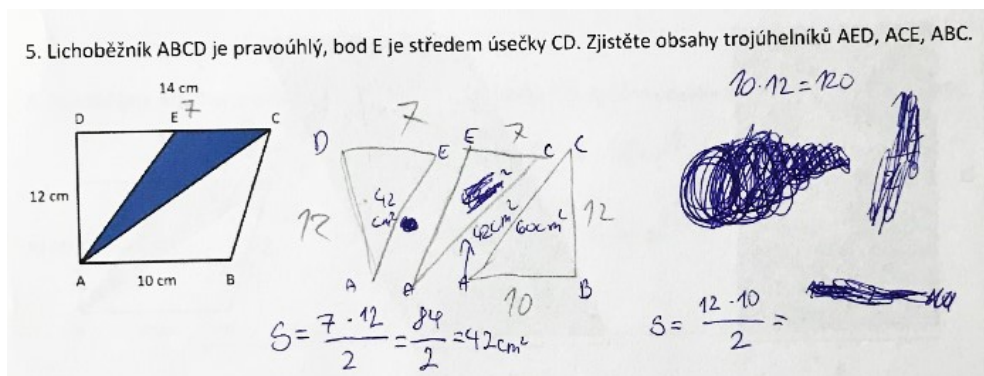 5. Lichoběžník ABCD je pravoúhlý, bod E je středem úsečky CD. Zjistěte obsahy trojúhelníků AED, ACE, ABC.
14 cm
D E 7 C
12 cm
A 10 cm B
10·12=120
D 7 E
12
42 cm²
A
E 7 C
42cm²
A
C
60cm²
12
A 10 B
S= 7·12/2 = 84/2 =42cm²
S= 12·10/2 =